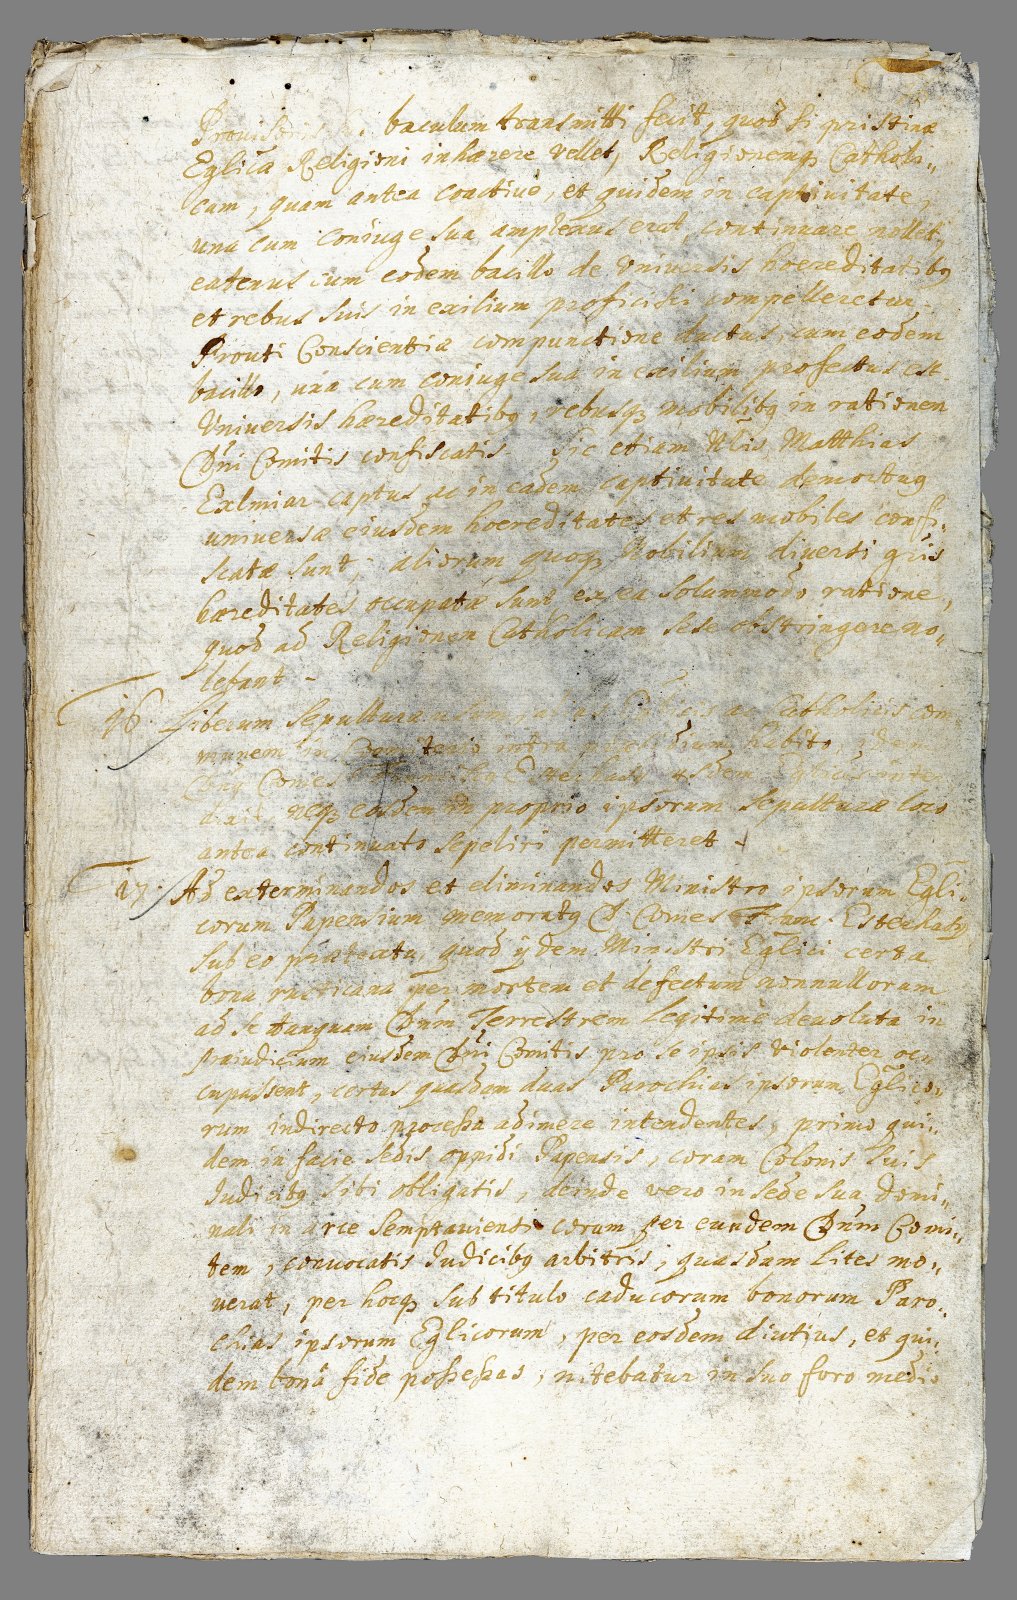 baculum transmitti fecit, quod si pristinæ
Eglica Religioni inhærere vellet, Religionemq Catholi=
cam, quam antea coactivè, et quidem in captivitate,
una cum coniuge sua amplexus erat, continuare nollet,
eatenus cum eodem bacillo de Universis hæreditatibq
et rebus suis in exilium proficisci compelleretur
Prouti Conscientiæ compunctione ductus, cum eodem
bacillo, una cum coniuge sua in exilium profectus est
Universis hæreditatibq, rebusq mobilibq in rationem
Dni Comitis confiscatis. Sic etiam Matthias
captus ac in eadem captivitate demortuq
universæ eiusdem hoereditates et res mobiles confi=
scatæ sunt; aliorum quoq Nobilium diversi gris
hæreditates occupatæ sunt ex ea solummodo ratione,
quod ad Religionem Catholicam sese obstringere no=
lebant -
16. Liberum sepultura
munem in habito,
Comes
neq eosdem in proprio ipsorum sepulturæ loco
antea continuato sepeliri permitteret
17. Ad exterminandos et eliminandos Ministro ipsorum Egli=
corum Papensium memoratq D. Comes Franc. Esterhasy
sub eo quod ijdem Ministri Eglici certa
bona rusticana per mortem et defectum nonnullorum
ad se tanquam Dnum Terrestrem legitimè devoluta in
præiudicium eiusdem Dni Comitis pro se ipsis violenter oc=
cupassent, certas quasdam duas Parochias ipsorum Eglico=
rum indirecto processu adimere intendentes, primo qui=
dem in facie sedis oppidi Papensis, coram Colonis suis
Iudicibq sibi obligatis, deinde vero in sede sua domi=
nali in arce coram per eundem Dnum Comi=
tem, convocatis Iudicibq arbitris, quasdam lites mo=
verat, per hocq sub titulo caducorum bonorum Paro=
chias ipsorum Eglicorum, per eosdem diutius, et qui=
dem bonâ fide possessas, nitebatur in suo foro medio